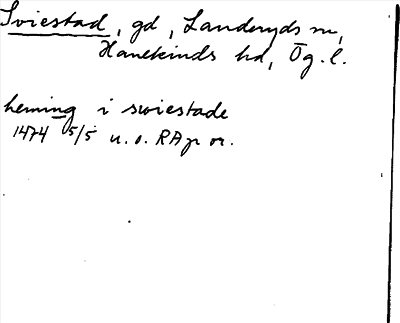 Sviestad, gd, Landeryds sn,
Hanekinds hd, Ög. l.
heming i swiestade
1474 5/5 u. o. RAp or.